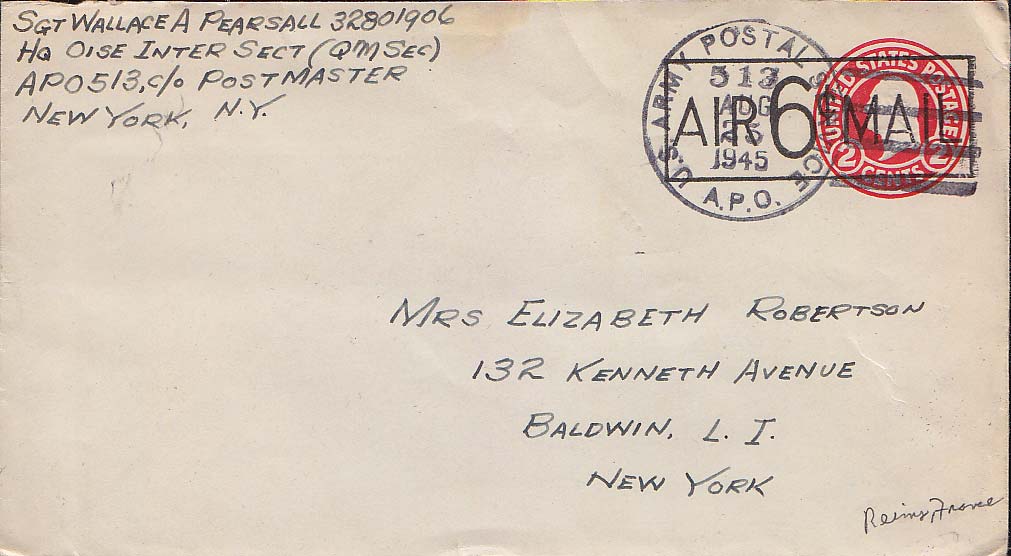 SGT WALLACE A PEARSALL 32801906
HQ OISE INTER SECT (QM SEC)
APO 513, c/o POSTMASTER
NEW YORK, N.Y.
U.S. ARMY POSTAL SERVICE
513
AUG
1945
A.P.O.
AIR 6c MAIL
UNITED STATES POSTAGE
2 CENTS 2
MRS ELIZABETH ROBERTSON
132 KENNETH AVENUE
BALDWIN, L. I.
NEW YORK
Reims, France